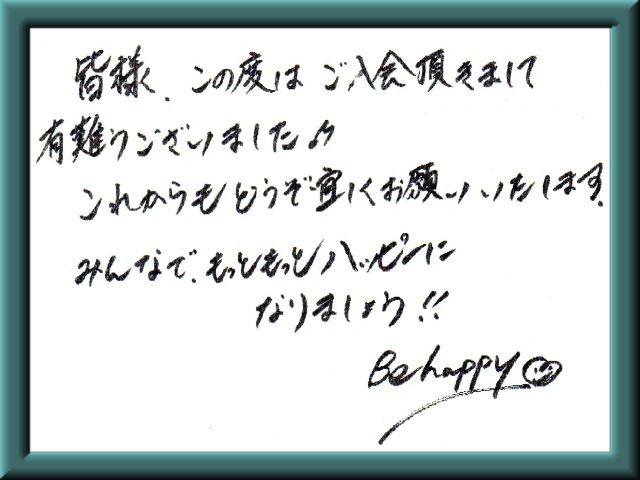 皆様、この度は ご入会頂きまして
有難うございました♪
これからもどうぞ宜しくお願いいたします。
みんなで、もっともっとハッピーに
なりましょう!!
Be happy